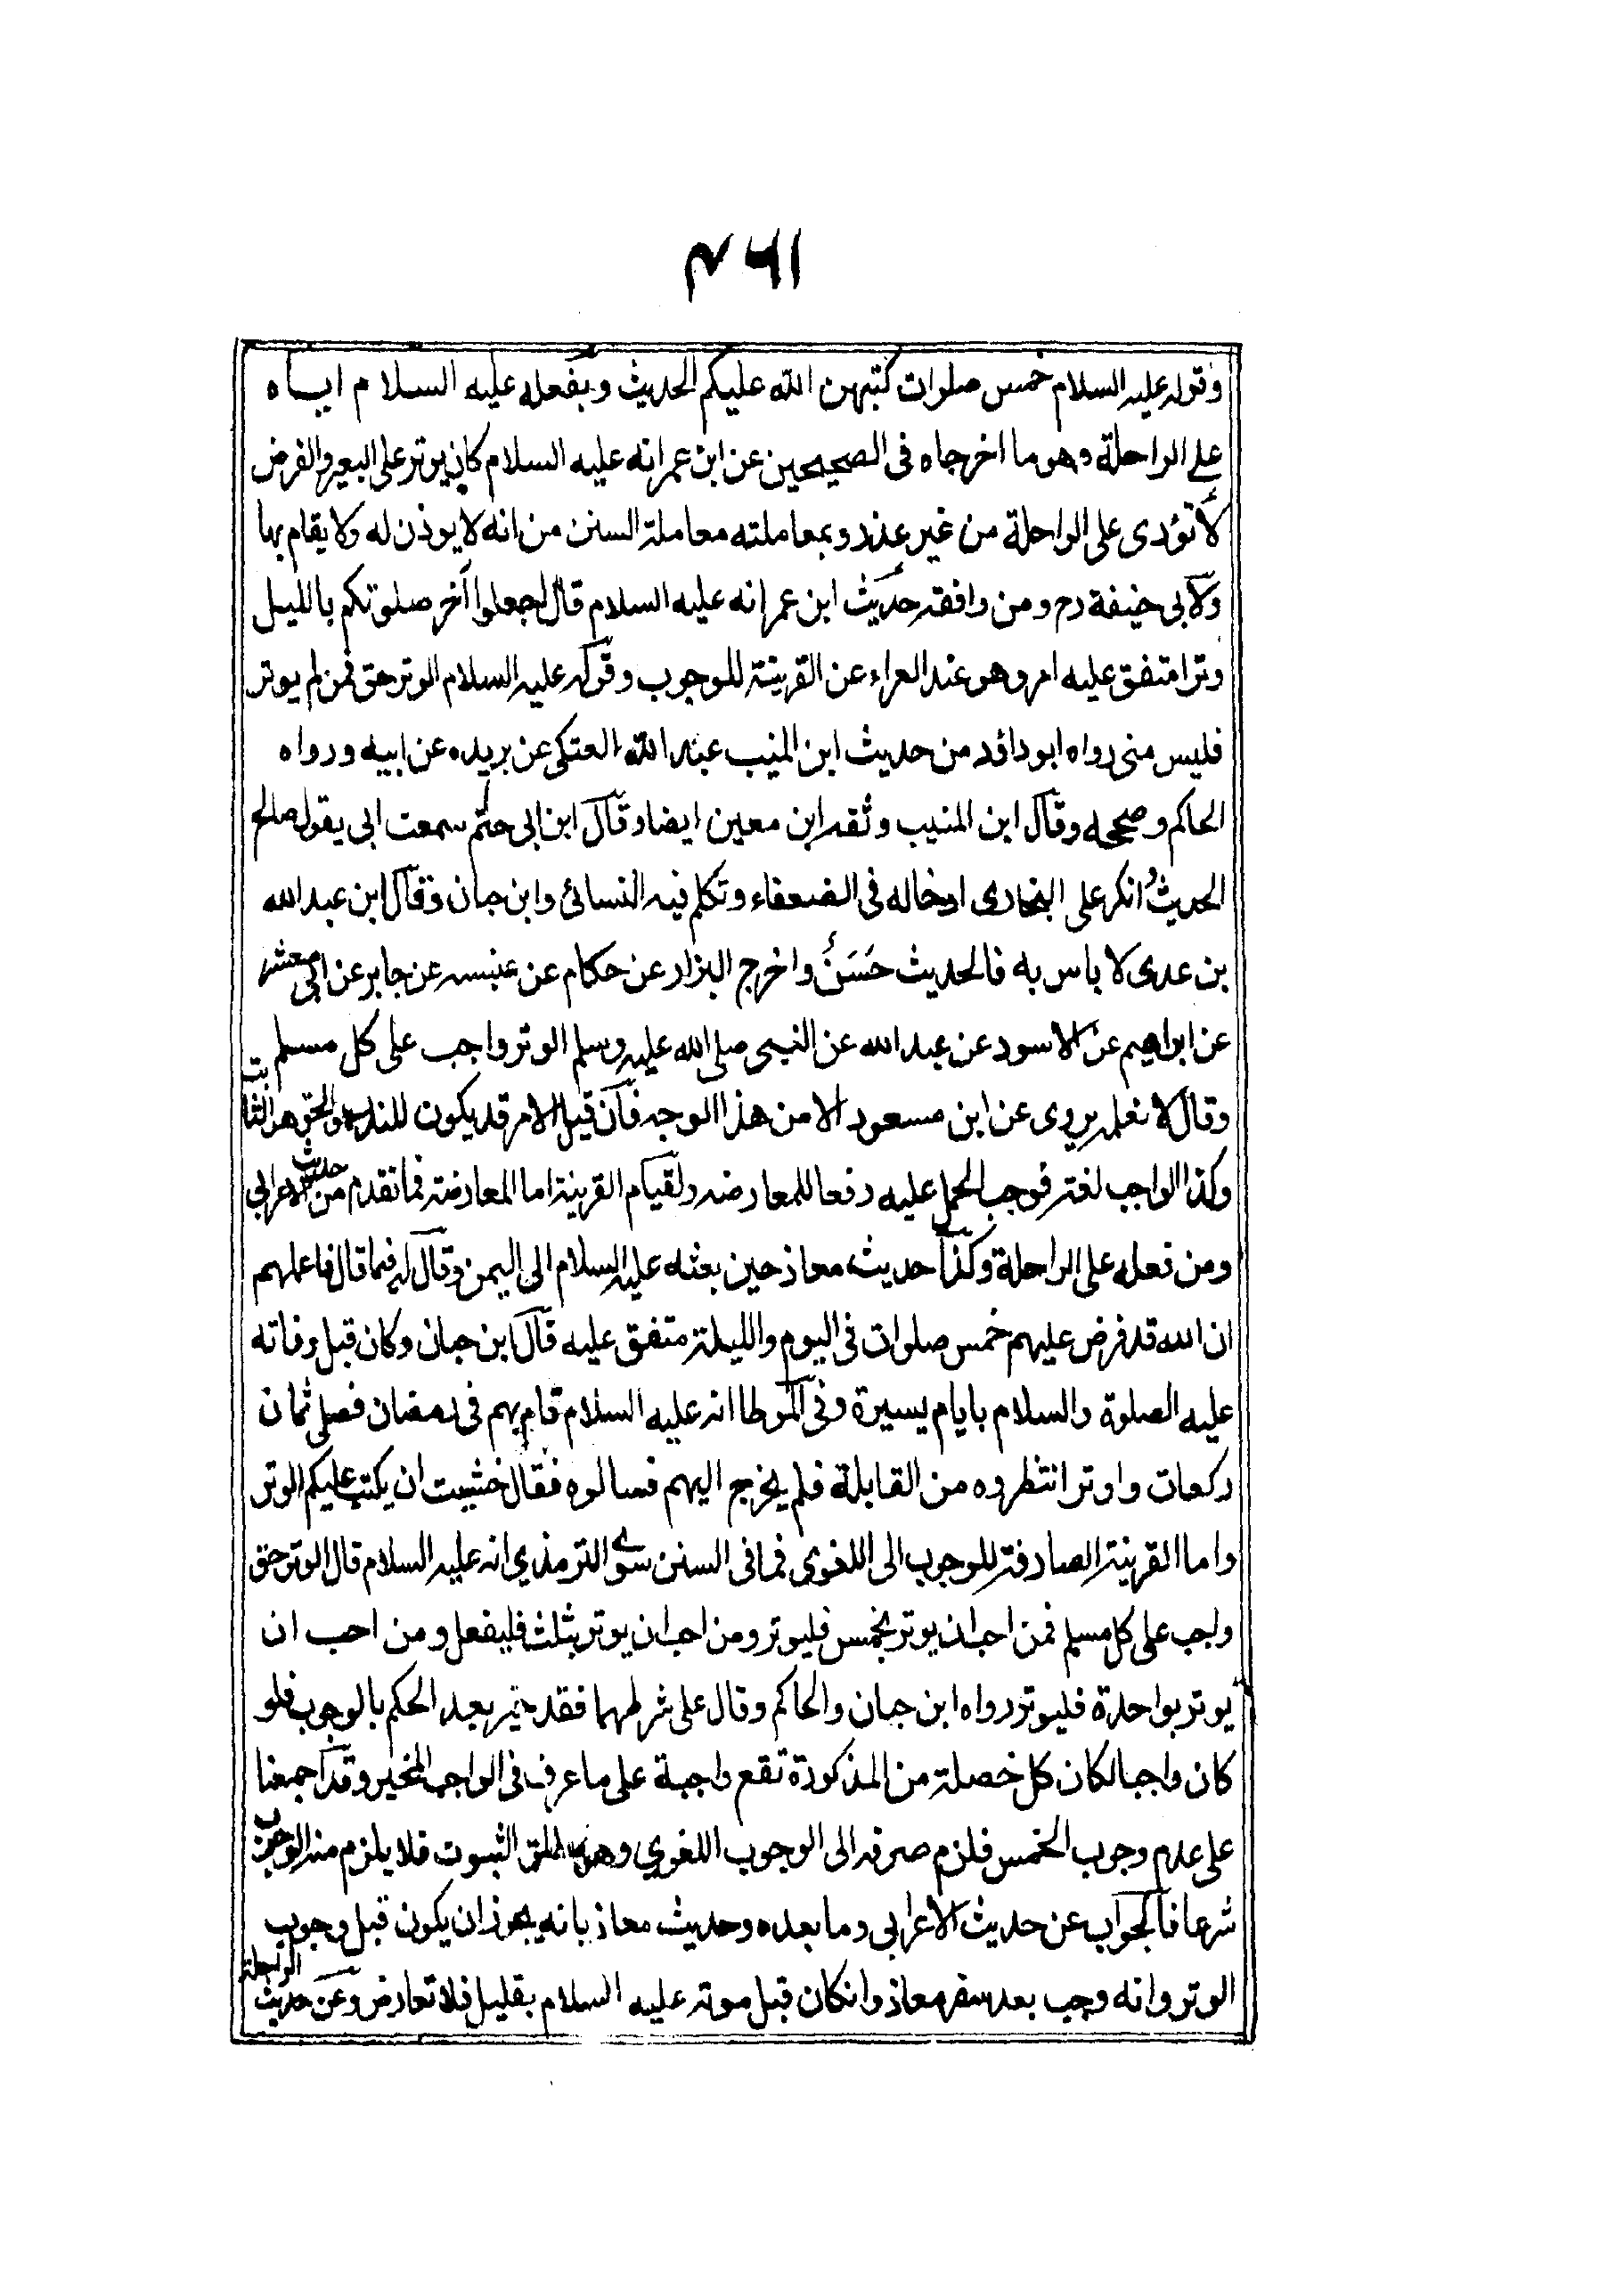 ٤٦١
وقوله عليه السلام خمس صلوات كتبهن الله عليكم الحديث وبفعله عليه السلام اياه
على الراحلة وهو ما اخرجاه فى الصحيحين عن ابن عمر انه عليه السلام كان يوتر على البعير والفرض
لا تؤدى على الراحلة من غير عذر وبمعاملته معاملة السنن من انه لا يوذن له ولا يقام بها
ولابى حنيفة رح ومن وافقه حديث ابن عمر انه عليه السلام قال اجعلوا آخر صلوتكم بالليل
وترا متفق عليه امر وهو عند العراء عن القرينة للوجوب وقوله عليه السلام الوتر حق فمن لم يوتر
فليس منى رواه ابو داؤد من حديث ابن المنيب عبد الله العتكى عن بريده عن ابيه ورواه
الحاكم وصححه وقال ابن المنيب وثقه ابن معين ايضا وقال ابن ابى حاتم سمعت ابى يقول صالح
الحديث وانكر على البخارى ادخاله فى الضعفاء وتكلم فيه النسائى وابن حبان وقال ابن عبد الله
بن عدى لا باس به فالحديث حَسَنٌ واخرج البزار عن حكام عن عنبسه عن جابر عن ابى معشر
عن ابراهيم عن الاسود عن عبد الله عن النبى صلى الله عليه وسلم الوتر واجب على كل مسلم
وقال لا نعلمه يروى عن ابن مسعود الا من هذا الوجه فان قيل الامر قد يكون للندب والحق هو الثابت
وكذا الواجب لغة فوجب الحمل عليه دفعا للمعارضه ولقيام القرينة اما المعارضة فما تقدم من حديث الاعرابى
ومن فعله على الراحلة وكذا حديث معاذ حين بعثه عليه السلام الى اليمن وقال له فيما قال فاعلمهم
ان الله قد فرض عليهم خمس صلوات فى اليوم والليلة متفق عليه قال ابن حبان وكان قبل وفاته
عليه الصلوة والسلام بايام يسيرة وفى الموطا انه عليه السلام قام بهم فى رمضان فصلى ثمان
ركعات واوتر انتظروه من القابلة فلم يخرج اليهم فسالوه فقال خشيت ان يكتب عليكم الوتر
واما القرينة الصارفة للوجوب الى اللغوى فما فى السنن سوى الترمذي انه عليه السلام قال الوتر حق
واجب على كل مسلم فمن احب ان يوتر بخمس فليوتر ومن احب ان يوتر بثلث فليفعل ومن احب ان
يوتر بواحدة فليوتر رواه ابن حبان والحاكم وقال على شرطهما فقد خير بعد الحكم بالوجوب فلو
كان واجبا لكان كل خصلة من المذكورة تقع واجبة على ما عرف فى الواجب المخير وقد اجمعنا
على عدم وجوب الخمس فلزم صرفه الى الوجوب اللغوي وهو الحق الثبوت فلا يلزم منه الوجوب
شرعا فالجواب عن حديث الاعرابى وما بعده وحديث معاذ بانه يجوز ان يكون قبل وجوب
الوتر وانه وجب بعد سفر معاذ وان كان قبل موته عليه السلام بقليل فلا تعارض وعن حديث الراحلة